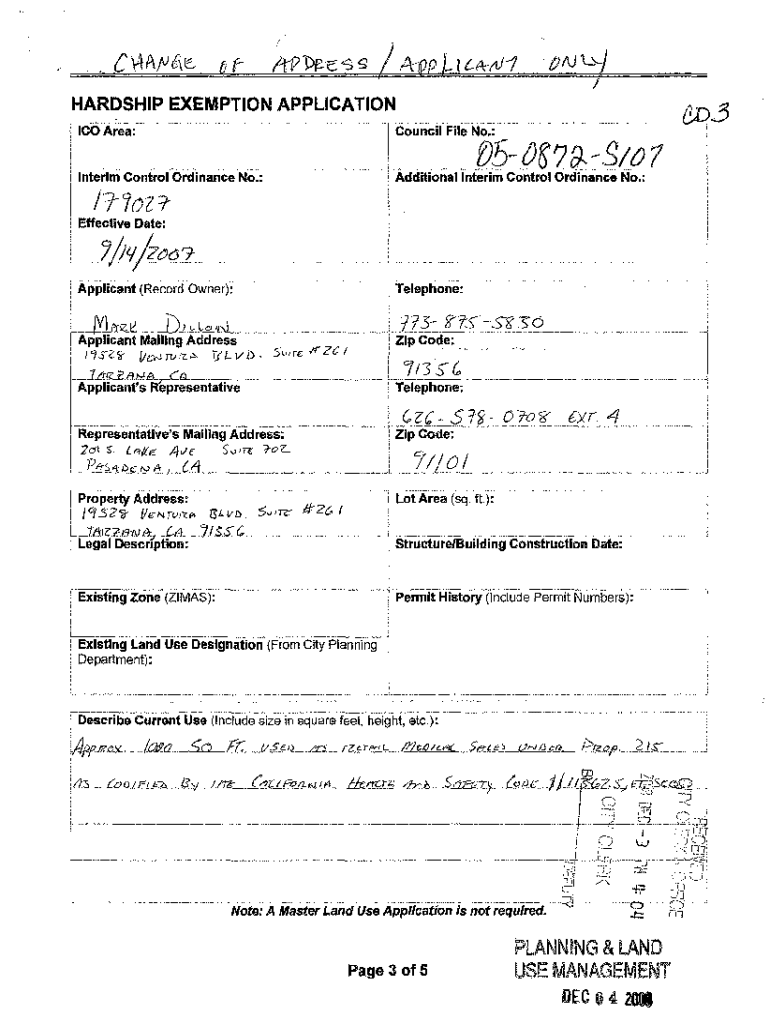 CHANGE OF ADDRESS / APPLICANT ONLY
HARDSHIP EXEMPTION APPLICATION
CD3
ICO Area:
Council File No.:
05-0872-S107
Interim Control Ordinance No.:
Additional Interim Control Ordinance No.:
179027
Effective Date:
9/14/2007
Applicant (Record Owner):
Telephone:
MARK DILLON
773-875-5830
Applicant Mailing Address
Zip Code:
19528 VENTURA BLVD. SUITE #261
91356
TARZANA, CA
Applicant's Representative
Telephone:
626-578-0708 EXT. 4
Representative's Mailing Address:
Zip Code:
201 S. LAKE AVE SUITE 702
91101
PASADENA, CA
Property Address:
Lot Area (sq. ft.):
19528 VENTURA BLVD. SUITE #261
TARZANA, CA 91356
Legal Description:
Structure/Building Construction Date:
Existing Zone (ZIMAS):
Permit History (Include Permit Numbers):
Existing Land Use Designation (From City Planning
Department):
Describe Current Use (Include size in square feet, height, etc.):
APPROX 1000 SQ FT. USED AS RETAIL MEDICAL SALES UNDER PROP. 215
AS CODIFIED BY THE CALIFORNIA HEALTH AND SAFETY CODE 11362.5, ET SEQ
RECEIVED
CITY CLERK'S OFFICE
DEC -3 4:04
CITY CLERK
BY
DEPUTY
Note: A Master Land Use Application is not required.
Page 3 of 5
PLANNING & LAND
USE MANAGEMENT
DEC 04